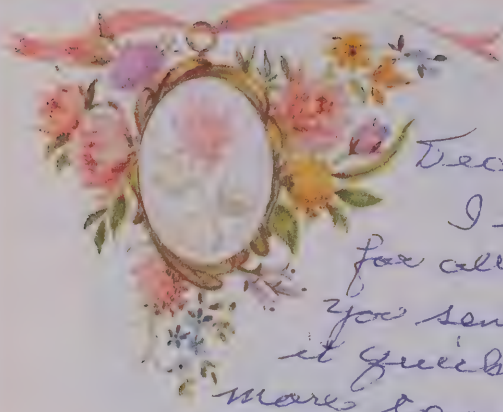 Dea
I
for all
you sen
it quick
more